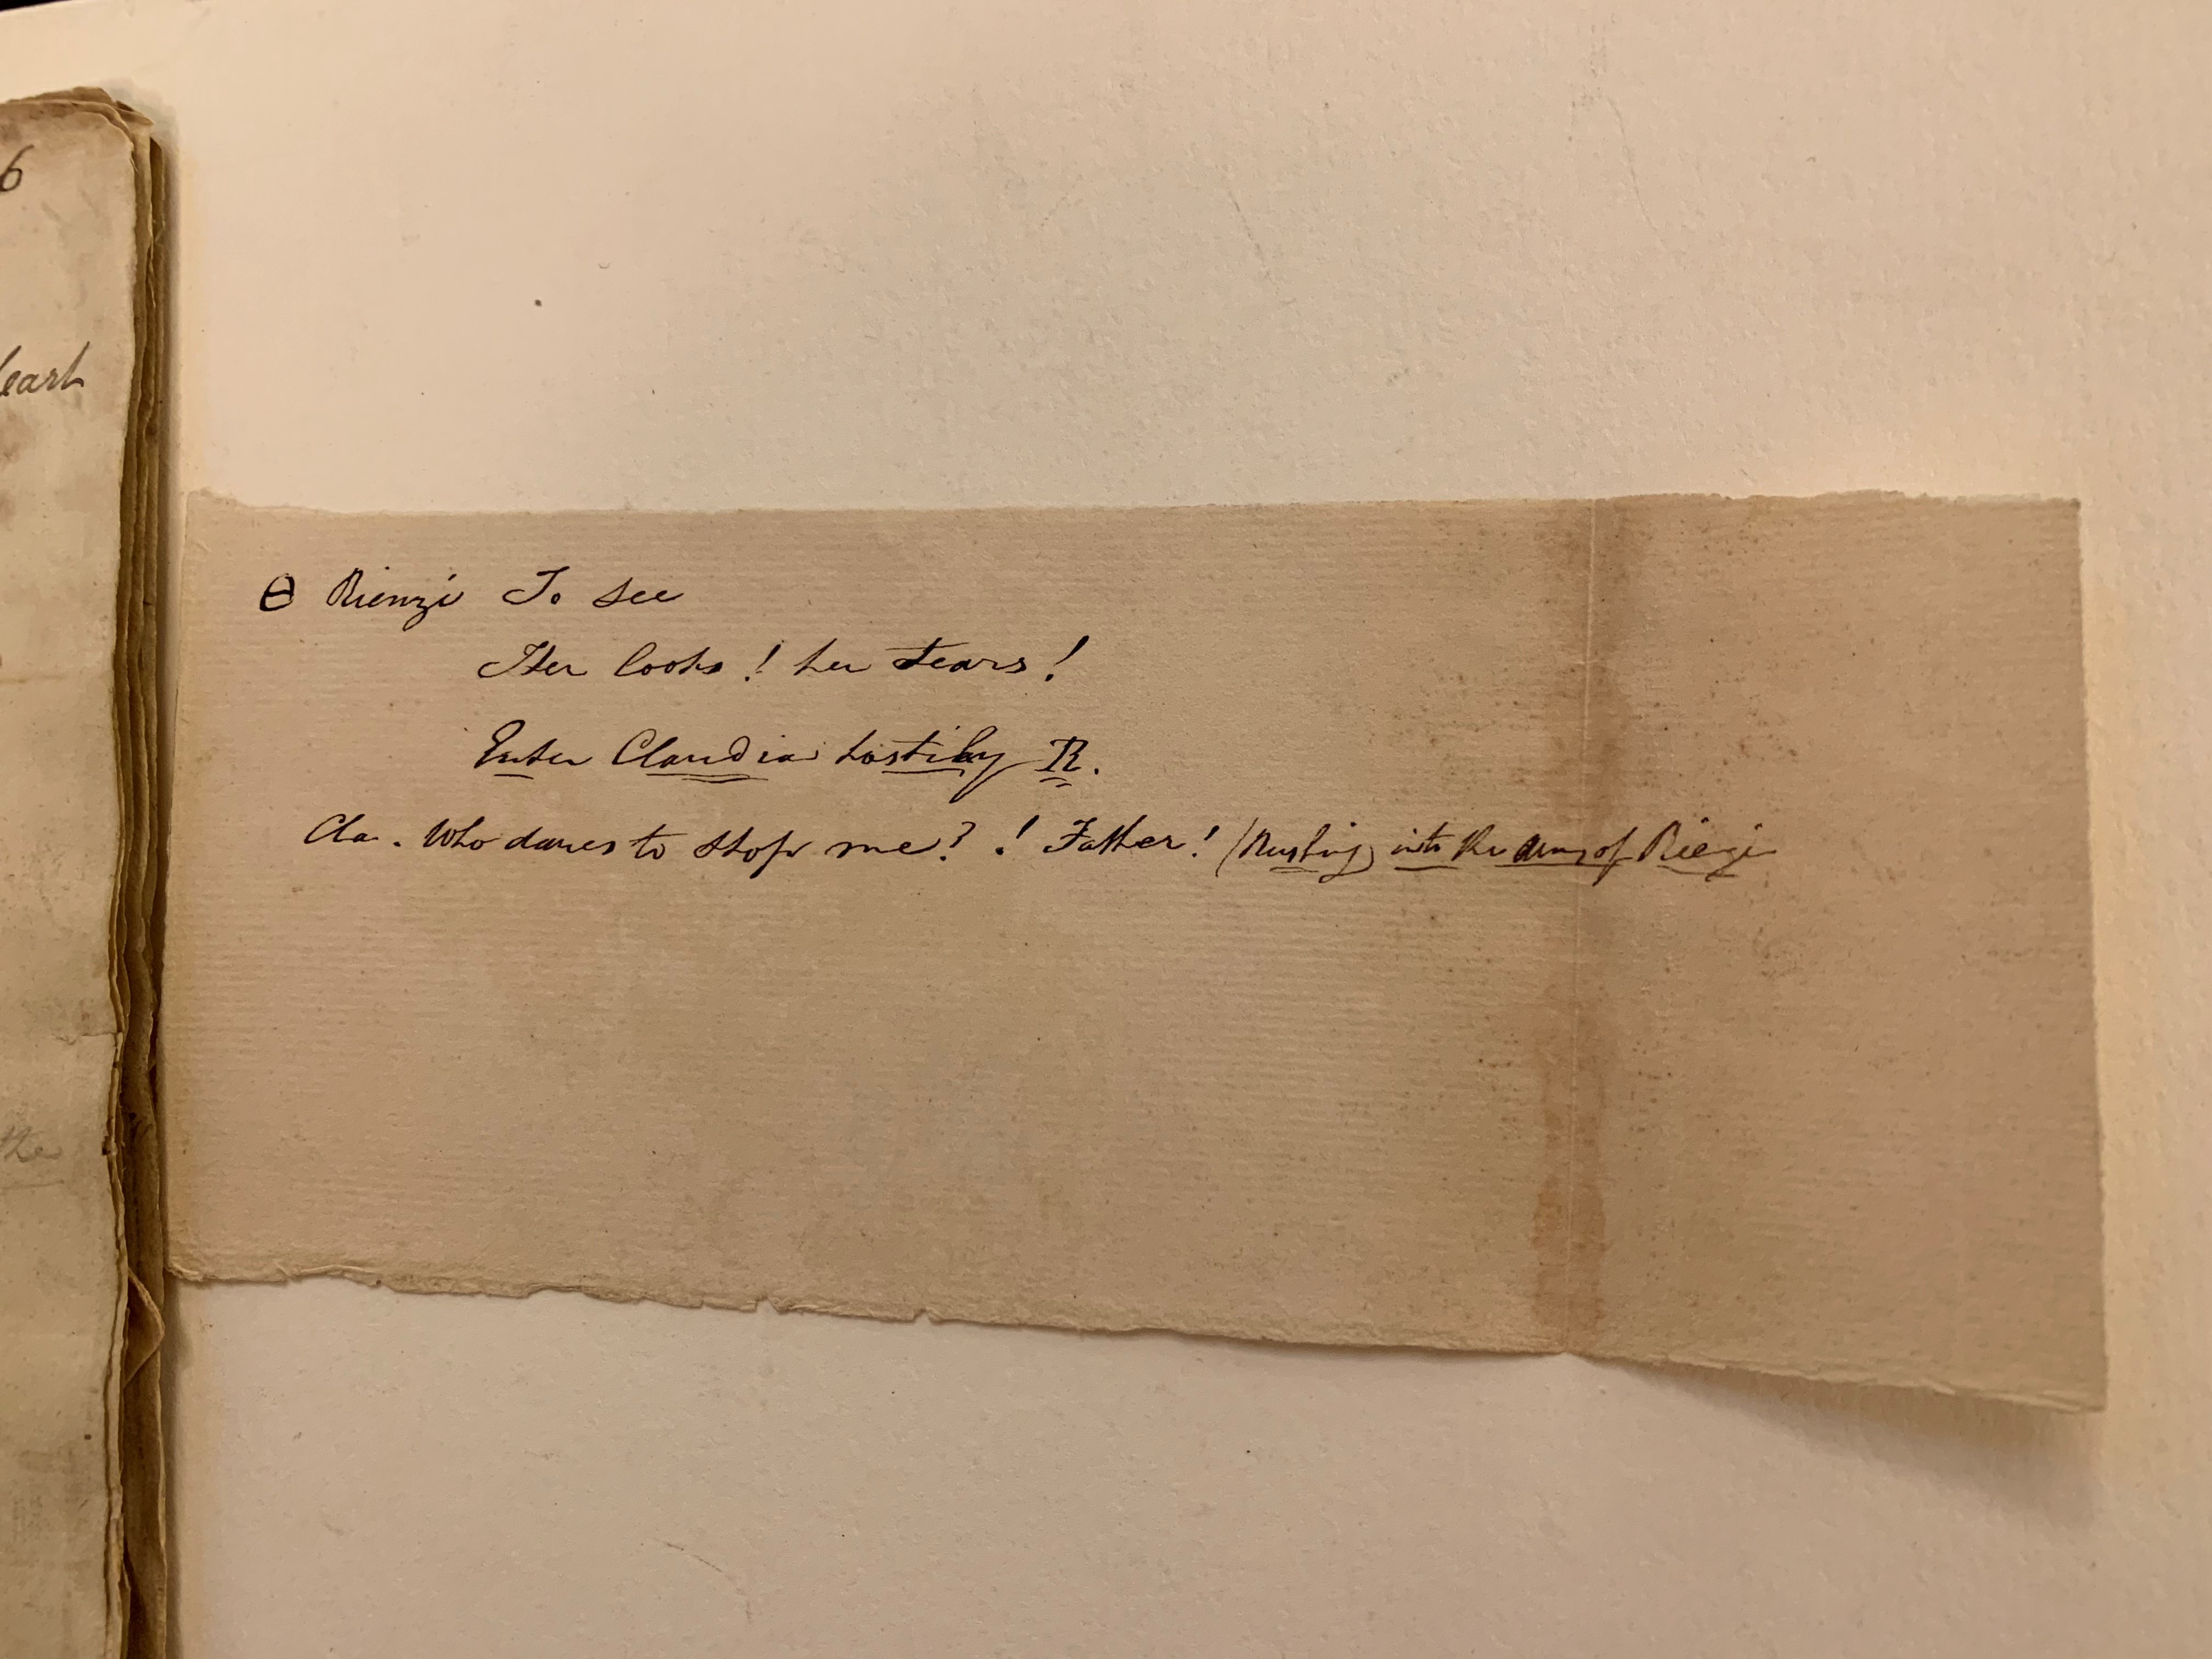 6
Θ Rienzi To see
Her looks! her tears!
Enter Claudia hastily R.
Cla. Who dares to stop me? ! Father! (Rushing into the arms of Rienzi
the